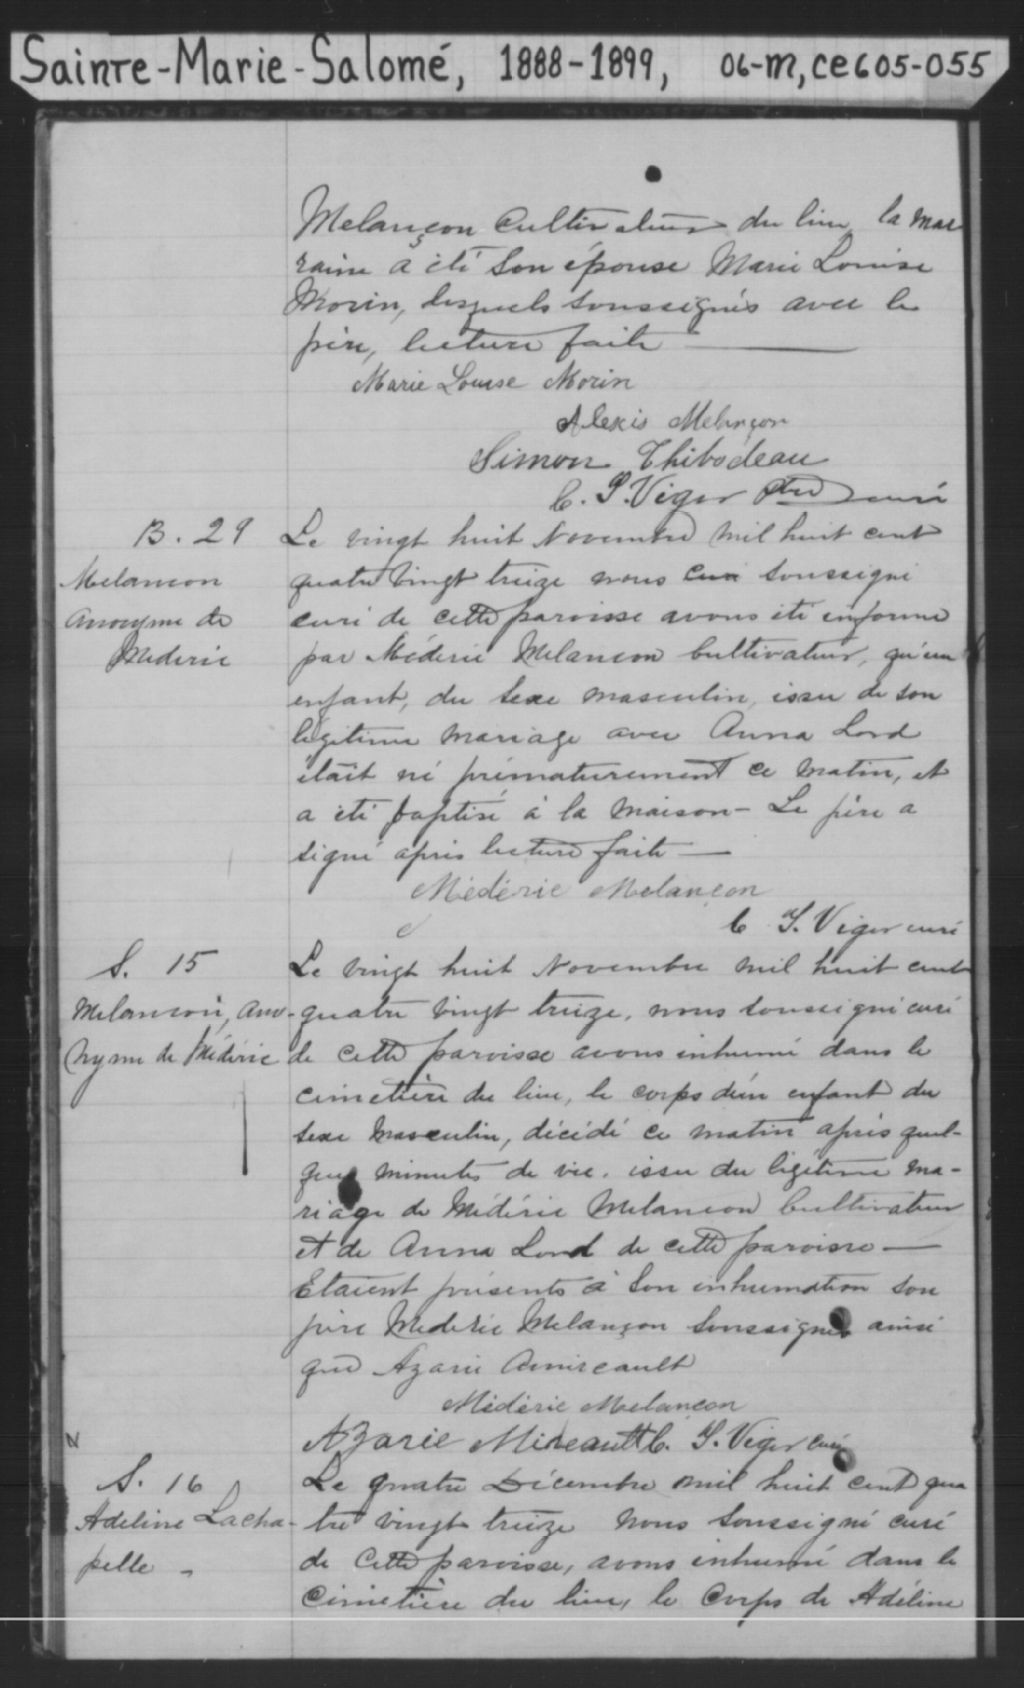 Sainte-Marie-Salomé, 1888-1899, 06-M, CE605-055
Melançon Cultivateur du lieu la mar
raine a été son épouse Marie Louise
Morin, lesquels soussignés avec le
père, lecture faite
Marie Louise Morin
Alexis Melançon
Simon Thibodeau
C. S. Viger Ptre curé
B. 29
Melancon
anonyme de
Mederic
Le vingt huit Novembre mil huit cent
quatre vingt treize nous soussigné
curé de cette paroisse avons été informé
par Médéric Melancon Cultivateur, qu'un
enfant, du sexe masculin, issu de son
légitime mariage avec Anna Lord
était né prématurement ce matin, et
a été baptisé à la maison - Le père a
signé après lecture faite
Médéric Melançon
C. S. Viger curé
S. 15
Melancon, ano-
nyme de Médéric
Le vingt huit Novembre mil huit cent
quatre vingt treize, nous soussigné curé
de cette paroisse avons inhumé dans le
cimetière du lieu, le corps d'un enfant du
sexe masculin, décédé ce matin après quel-
ques minutes de vie. issu du légitime ma-
riage de Médéric Melancon Cultivateur
et de Anna Lord de cette paroisse -
Etaient présents à son inhumation son
père Mederic Melançon soussigné ainsi
que Azarie Amireault
Médéric Melancon
Azarie Mireault C. S. Viger curé
S. 16
Adeline Lacha-
pelle -
Le quatre Décembre mil huit cent qua
tre vingt treize nous soussigné curé
de cette paroisse, avons inhumé dans le
Cimetière du lieu, le Corps de Adéline